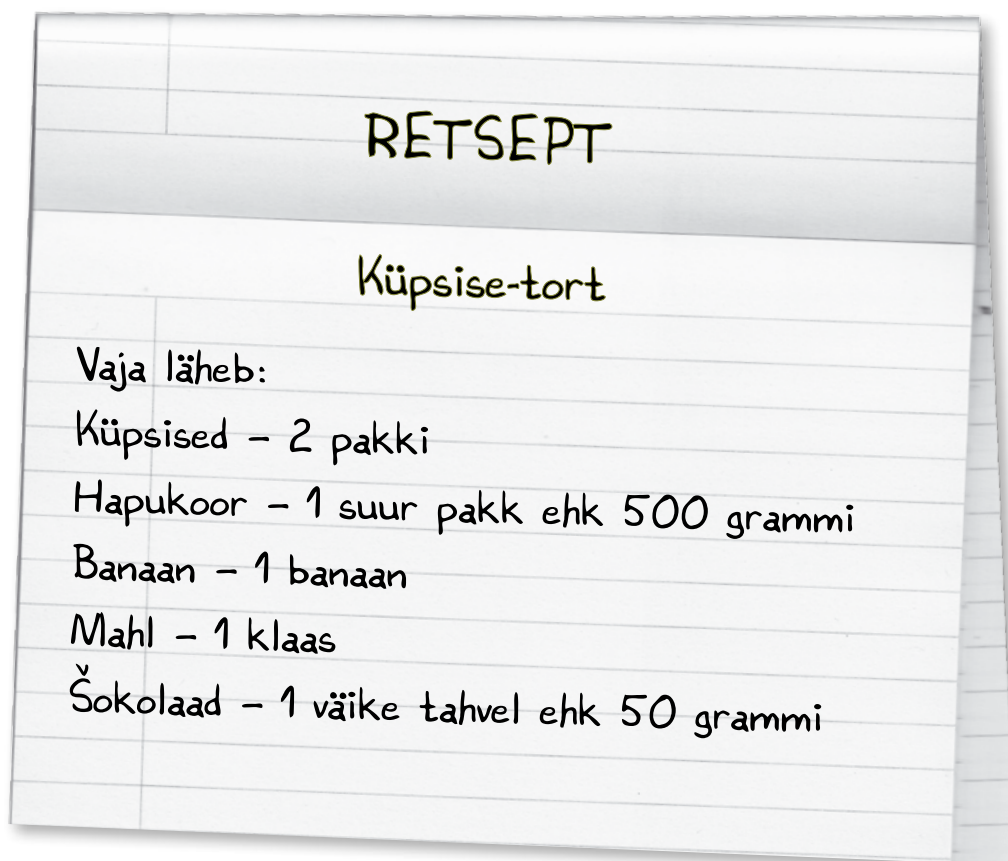 RETSEPT
Küpsise-tort
Vaja läheb:
Küpsised – 2 pakki
Hapukoor – 1 suur pakk ehk 500 grammi
Banaan – 1 banaan
Mahl – 1 klaas
Šokolaad – 1 väike tahvel ehk 50 grammi